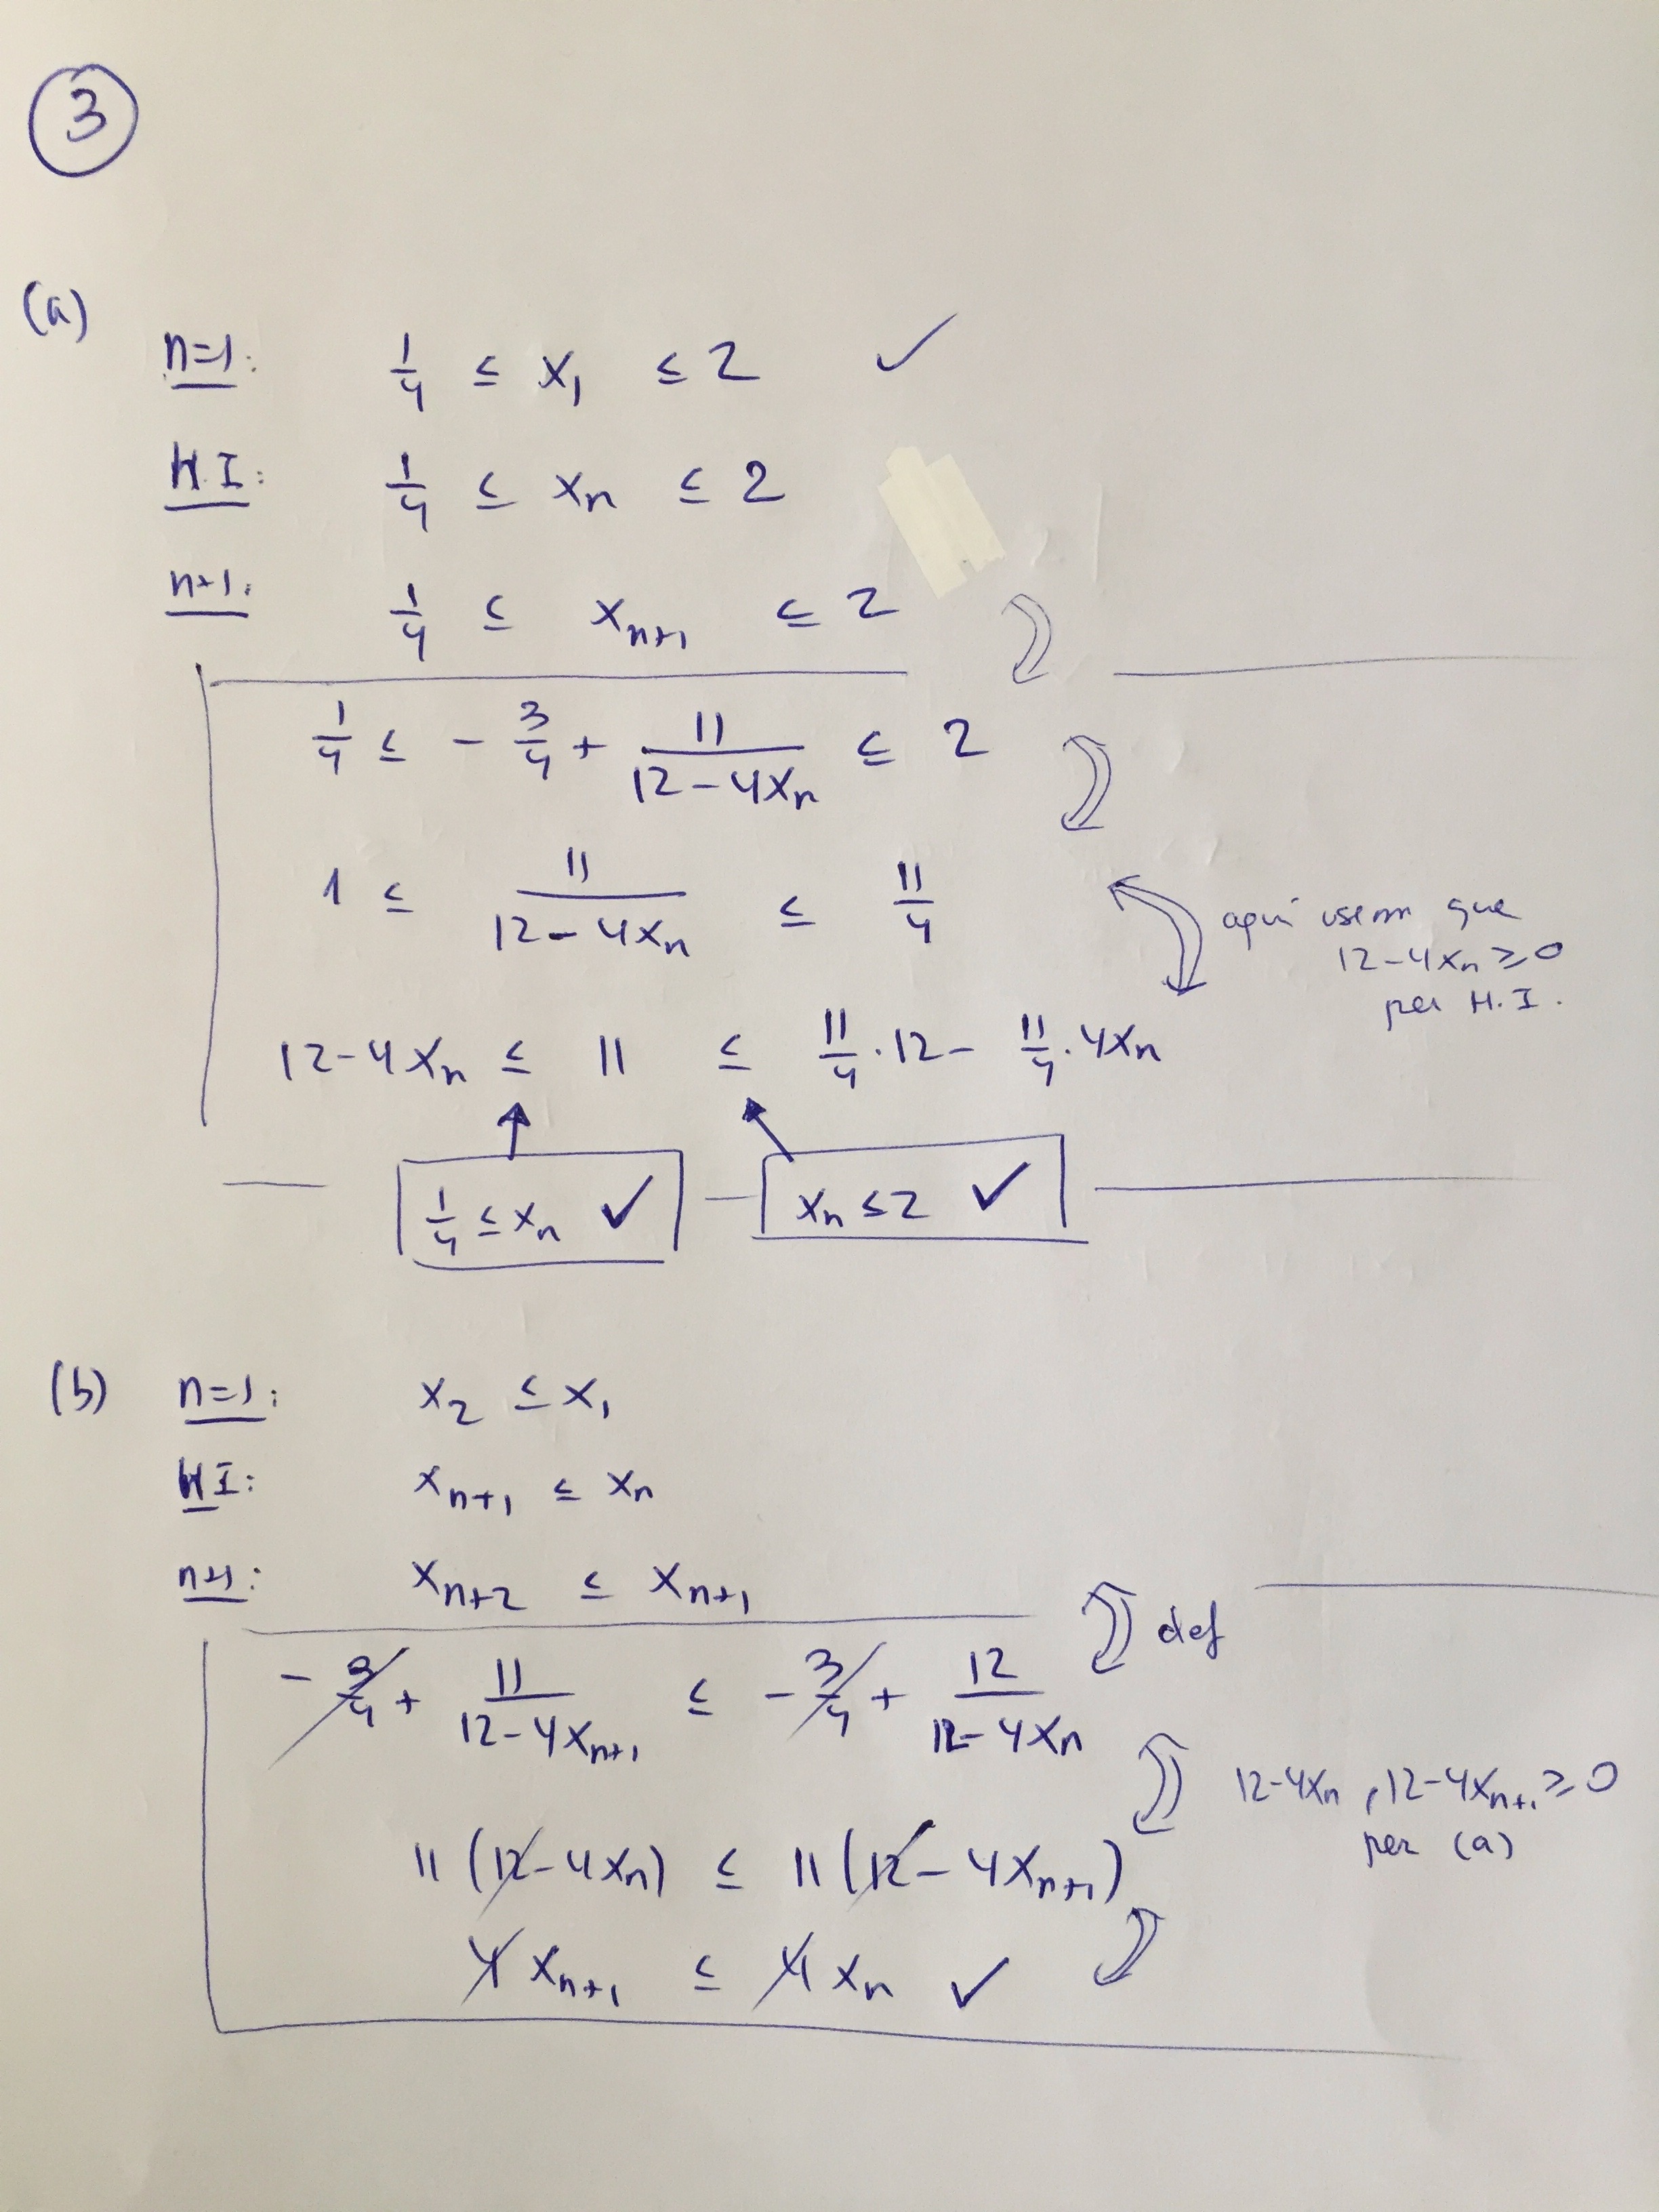 3
(a)
n=1: 1/4 ≤ x₁ ≤ 2 ✓
H.I: 1/4 ≤ xₙ ≤ 2
n+1: 1/4 ≤ xₙ₊₁ ≤ 2
1/4 ≤ - 3/4 + 11/(12-4xₙ) ≤ 2
1 ≤ 11/(12-4xₙ) ≤ 11/4
aquí usem que
12-4xₙ ≥ 0
per H.I.
12-4xₙ ≤ 11 ≤ 11/4 · 12 - 11/4 · 4xₙ
1/4 ≤ xₙ ✓ xₙ ≤ 2 ✓
(b) n=1: x₂ ≤ x₁
HI: xₙ₊₁ ≤ xₙ
n+1: xₙ₊₂ ≤ xₙ₊₁
def
- 3/4 + 11/(12-4xₙ₊₁) ≤ - 3/4 + 12/(12-4xₙ)
12-4xₙ, 12-4xₙ₊₁ ≥ 0
per (a)
11(12-4xₙ) ≤ 11(12-4xₙ₊₁)
4xₙ₊₁ ≤ 4xₙ ✓